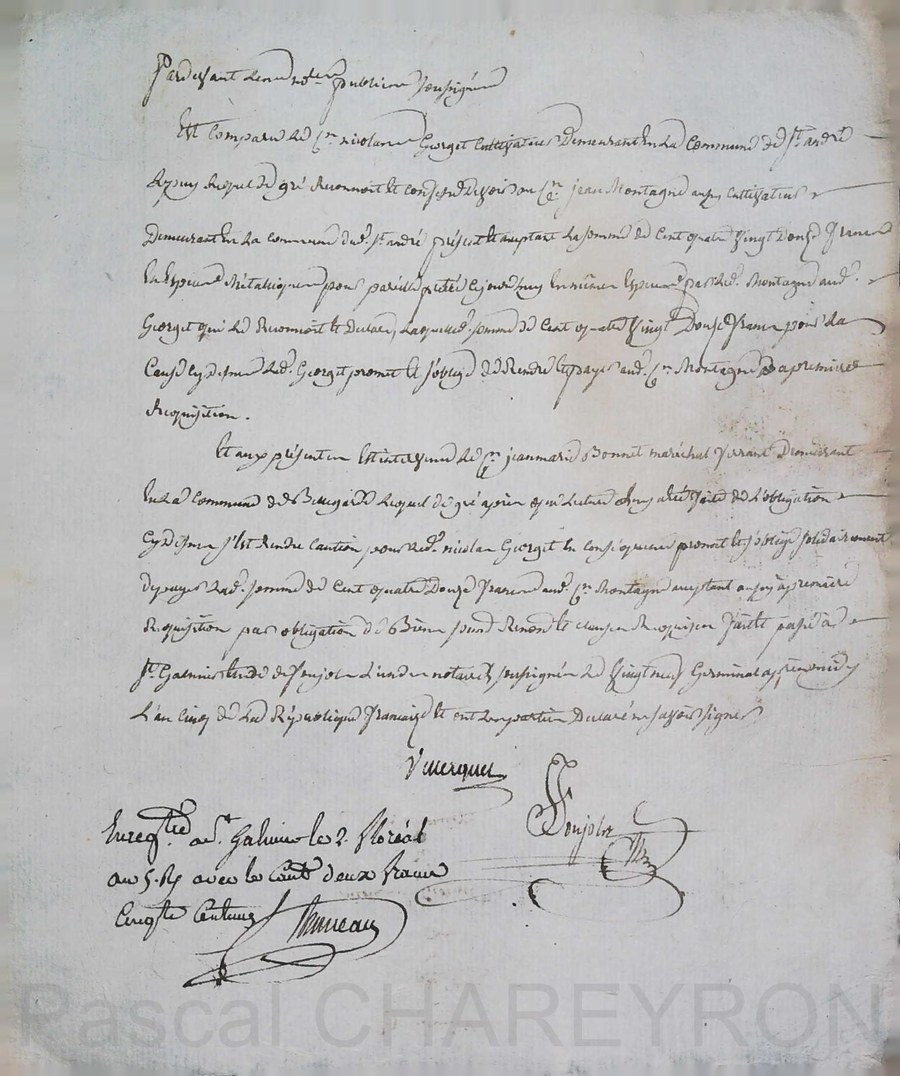 Pardevant les notres publics soussignés
Est comparu le Cn nicolas Georget Cultivateur Demeurant En La Commune de St andré
Lepuy Lequel de gré Reconnoit Et Confesse Devoir au Cn jean Montagne aussy Cultivateur
Demeurant En La commune dud. St andré présent Et acceptant La somme de Cent quatre Vingt Douze francs
En Especes Métalliques pour pareille prêtée Cejourd'huy En mêmes Especes par Led. Montagne aud.
Georget qui Le Reconnoit Et Declare, Laquelle somme de Cent quatre Vingt Douze francs pour La
Cause Cydessus Led. Georget promet Et s'oblige De Rendre Et payer aud. Cn Montagne a La premiere
Requisition.
Et aux présentes Est intervenu Le Cn jeanmarie Bonnet maréchal ferrant Demeurant
En La Commune de Bellegarde Lequel de gré après que Lecture a été faite de L'obligation
Cydessus s'Est Rendu Caution pour Led. nicolas Georget En Conséquence promet Et s'oblige solidairement
De payer Lad. somme de Cent quatre Douze francs aud. Cn Montagne acceptant aussy a premiere
Requisition par obligation de Biens soumis Renon. Et clauses Requises fait Et passé à
St Galmier Etude de Poujolz L'un des notaires soussignés Le Vingt neuf Germinal après midy
L'an Cinq de La République française Et ont Les parties Declaré ne savoir signer
Vuerquet
Poujolz
Nre
Enregtré a St Galmier le 2. floréal
an 5. Rs avec le Contre deux francs
Cinqte Centimes